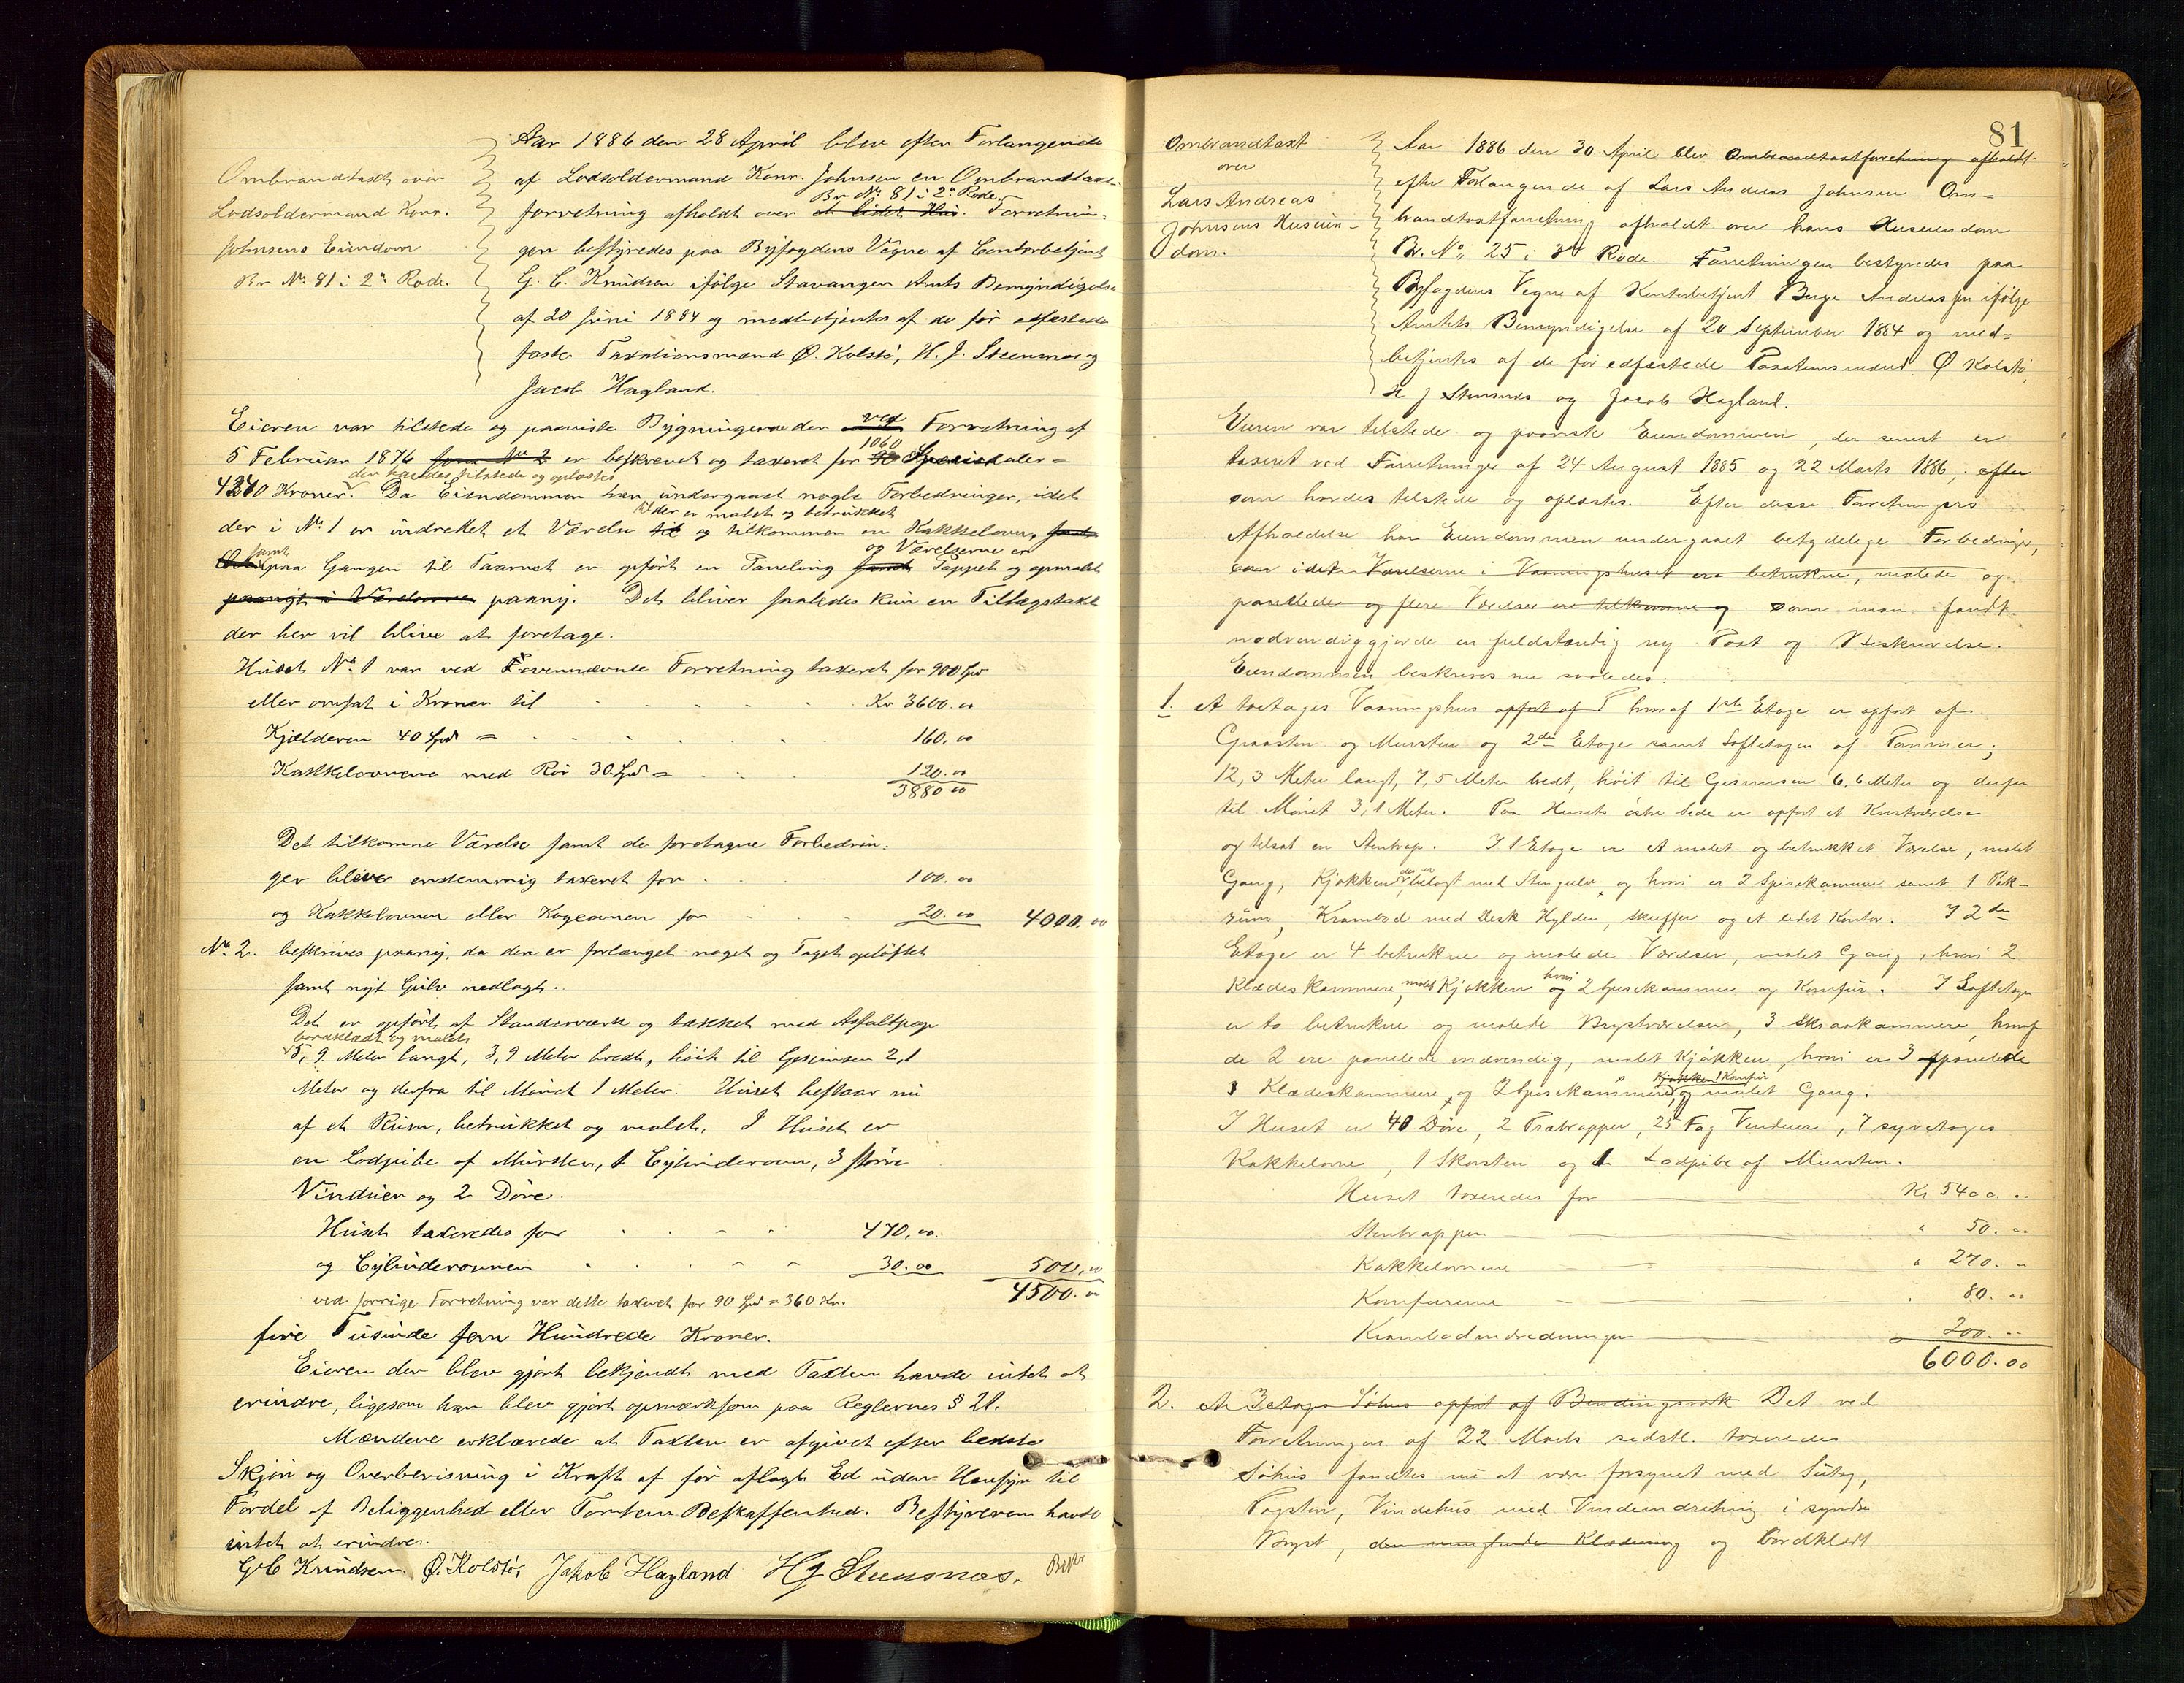 Ombrandtaxt over
Lodsoldermand Konr.
Johnsens Eiendom
Br Nº 81 i 2n Rode.
Aar 1886 den 28 April blev efter Forlangende
af Lodsoldermand Konr. Johnsen en Ombrandtaxt-
Br Nº 81 i 2n Rode.
forretning afholdt over et lidet Hus. Forretnin-
gen bestyredes paa Byfogdens Vegne af Contorbetjent
G. C. Knudsen ifølge Stavanger Amts Bemyndigelse
af 20 Juni 1884 og medbetjentes af de før edfæstede
faste Taxationsmænd Ø. Kolstø, H. J. Steensnæs og
Jacob Hagland.
Eieren var tilstede og paaviste Bygningerne der ved Forretning af
1060
5 Februar 1876 som Nº 2 er beskrevet og taxeret for 90 Speciedaler =
der havdes tilstede og oplæstes
4240 Kroner. Da Eiendommen har undergaaet nogle Forbedringer, idet
der er malet og betrukket
der i Nº 1 er indrettet et Værelse til og tilkommen en Kakkelovn, samt
samt og Værelserne er
paa Gangen til Taarnet er opført en Paneling samt Tappet og opmalet
paanyt i Værelserne paany. Det bliver saaledes kun en Tillægstaxt
der her vil blive at foretage.
Huset Nº 1 var ved Fovennævnte Forretning taxeret for 900 Spd
eller omsat i Kroner til Kr 3600.00
Kjælderen 40 Spd = 160.00
Kakkelovnene med Rør 30 Spd = 120.00
3880 00
Det tilkomne Værelse samt de foretagne Forbedrin-
ger bliver enstemmig taxeret for 100.00
og Kakkelovnen eller Kogeovnen for 20.00 4000.00
Nº 2. beskrives paany, da den er forlænget noget og Taget opløftet
samt nyt Gulv nedlagt.
Det er opført af Standerværk og tækket med Asfaltpap
bordklædt og malet
5,9 Meter langt, 3,9 Meter bredt, höit til Gesimsen 2,1
Meter og derfra til Mönet 1 Meter. Huset bestaar nu
af et Rum, betrukket og malet. I Huset er
en Lodpibe af Mursten, 1 Cylinderovn, 3 större
Vinduer og 2 Döre.
Huset taxeredes for 470.00.
og Cylinderovnen 30.00 500.00
ved forrige Forretning var dette taxeret for 90 Spd = 360 Kr. 4500.00
fire Tusinde fem Hundrede Kroner.
Eieren der blev gjort bekjendt med Taxten havde intet at
erindre, ligesom han blev gjort opmærksom paa Reglernes § 21.
Mændene erklærede at Taxten er afgivet efter bedste
Skjøn og Overbevisning i Kraft af før aflagt Ed uden Hensyn til
Fordel af Beliggenhed eller Tomtens Beskaffenhed. Bestyreren havde
intet at erindre.
G C Knudsen. Ø. Kolstø, Jakob Hagland H J Steensnæs.
81
Ombrandtaxt
over
Lars Andreas
Johnsens Huseien-
dom.
Aar 1886 den 30 April blev Ombrandtaxtforretning afholdt
efter Forlangende af Lars Andreas Johnsen Om-
brandtaxtforretning afholdt over hans Huseiendom
Br. No 25 i 3de Rode. Forretningen bestyredes paa
Byfogdens Vegne af Kontorbetjent Berge Andreassen ifølge
Amtets Bemyndigelse af 20 September 1884 og med-
betjentes af de før edfæstede Taxationsmænd Ø Kolstø,
H J Stensnæs og Jacob Hagland.
Eieren var tilstede og paaviste Eiendommen, der senest er
taxeret ved Forretninger af 24 August 1885 og 22 Marts 1886, efter
som havdes tilstede og oplæstes. Efter disse Forretningers
Afholdelse har Eiendommen undergaaet betydelige Forbedringer,
idet Værelserne i Vaaningshuset ere betrukne, malede og
panelede og flere Værelser ere tilkomne og som man fandt
nødvendiggjorde en fuldstændig ny Taxt og Beskrivelse.
Eiendommen beskrives nu saaledes:
1. et toetages Vaaningshus opført af T hvoraf 1ste Etage er opført af
Graasten og Mursten og 2den Etage samt Loftetagen af Tømmer;
12,3 Meter langt, 7,5 Meter bredt, höit til Gesimsen 6,6 Meter og derfra
til Mönet 3,1 Meter. Paa Husets østre Side er opført et Kvistværelse
og tilsat en Stentrap. I 1 Etage er et malet og betrukket Værelse, malet
der er
Gang, Kjøkken belagt med Stengulv, og hvori er 2 Spisekammer samt 1 Pak-
rum, Krambod med Disk Hylder, Skuffer og et lidet Kontor. I 2den
Etage er 4 betrukne og malede Værelser, malet Gang, hvori 2
malet hvori
Klædeskammere, Kjøkken og 2 Spisekammer og Komfur. I Loftetagen
er to betrukne og malede Brystværelser, 3 Skraakammere, hvoraf
de 2 ere panelede indvendig, malet Kjøkken, hvori er 3 oppanelede
Kjøkken 1 Komfur
Klædeskammere, og 2 Spisekammere, og malet Gang.
I Huset er 40 Döre, 2 Trætrapper, 25 Fag Vinduer, 7 syvetages
Kakkelovne, 1 Skorsten og 1 Lodpibe af Mursten.
Huset taxeredes for Kr 5400. 00
Stentrappen " 50. 00
Kakkelovnene " 270. 00
Komfurerne " 80. 00
Krambodindredningen 200. 00
6000.00
2. et 3etages Søhus opført af Bindingsværk Det ved
Forretningen af 22 Marts sidstl. taxeredes
Søhus fandtes nu at være forsynet med Sutag,
Tagsten, Vindehus med Vindeindretning i syndre
Bryst, den manglende Klædning og bordklædt